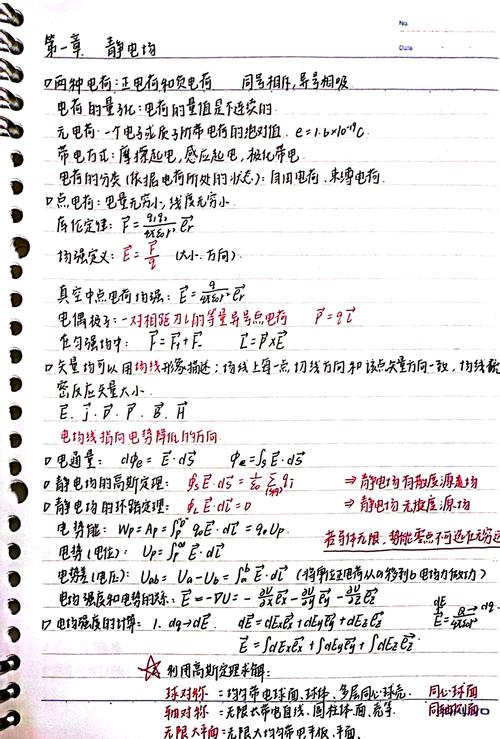 No.
Date
第一章 静电场
□两种电荷：正电荷和负电荷 同号相斥，异号相吸
电荷的量子化：电荷的量值是不连续的
元电荷：一个电子或质子所带电荷的绝对值. e=1.6×10⁻¹⁹C
带电方式：摩擦起电，感应起电，极化带电
电荷的分类（依据电荷所处的状态）：自由电荷、束缚电荷
□点电荷：电量无穷小，线度无穷小
库伦定律：F⃗=q₁q₂/4πε₀r² e⃗r
场强定义：E⃗=F⃗/q （大小.方向）
真空中点电荷场强：E⃗=q/4πε₀r² e⃗r
电偶极子：一对相距为l的等量异号点电荷 P⃗=ql⃗
在匀强场中： F⃗=F⃗₊+F⃗₋ L⃗=P⃗×E⃗
□矢量场可以用场线形象描述；场线上每一点，切线方向和该点矢量方向一致，场线疏
密反应矢量大小.
E⃗. J⃗. D⃗. P⃗. B⃗. H⃗
电场线指向电势降低的方向
□电通量： dφe=E⃗·dS⃗ φe=∫s E⃗·dS⃗
□静电场的高斯定理： φs E⃗·dS⃗=1/ε₀ Σ qi ⇒静电场有散度源场
□静电场的环路定理： φL E⃗·dl⃗=0 ⇒静电场 无旋度源场
电势能：Wp=Ap=∫p^"0" q₀E⃗·dl⃗=q₀Up
电势（电位）：Up=∫p E⃗·dl⃗ 若导体无限，势能零点不可选在无穷远
电势差(电压)：Uab=Ua-Ub=∫a^b E⃗·dl⃗ （将单位正电荷从a移到b电场力做功）
电场强度和电势的关系：E⃗=-∇U=-∂U/∂x e⃗x-∂U/∂y e⃗y-∂U/∂z e⃗z
□电场强度的计算：1. dq→dE⃗. dE⃗=dEx e⃗x+dEy e⃗y+dEz e⃗z
E⃗=∫dEx e⃗x+∫dEy e⃗y+∫dEz e⃗z
☆利用高斯定理求解：
球对称=均匀带电球面、球体、多层同心球壳. 同心球面
轴对称=无限长带电直线、圆柱体.面、壳等. 同轴圆面
无限大平面=无限大均匀带电平板、平面.